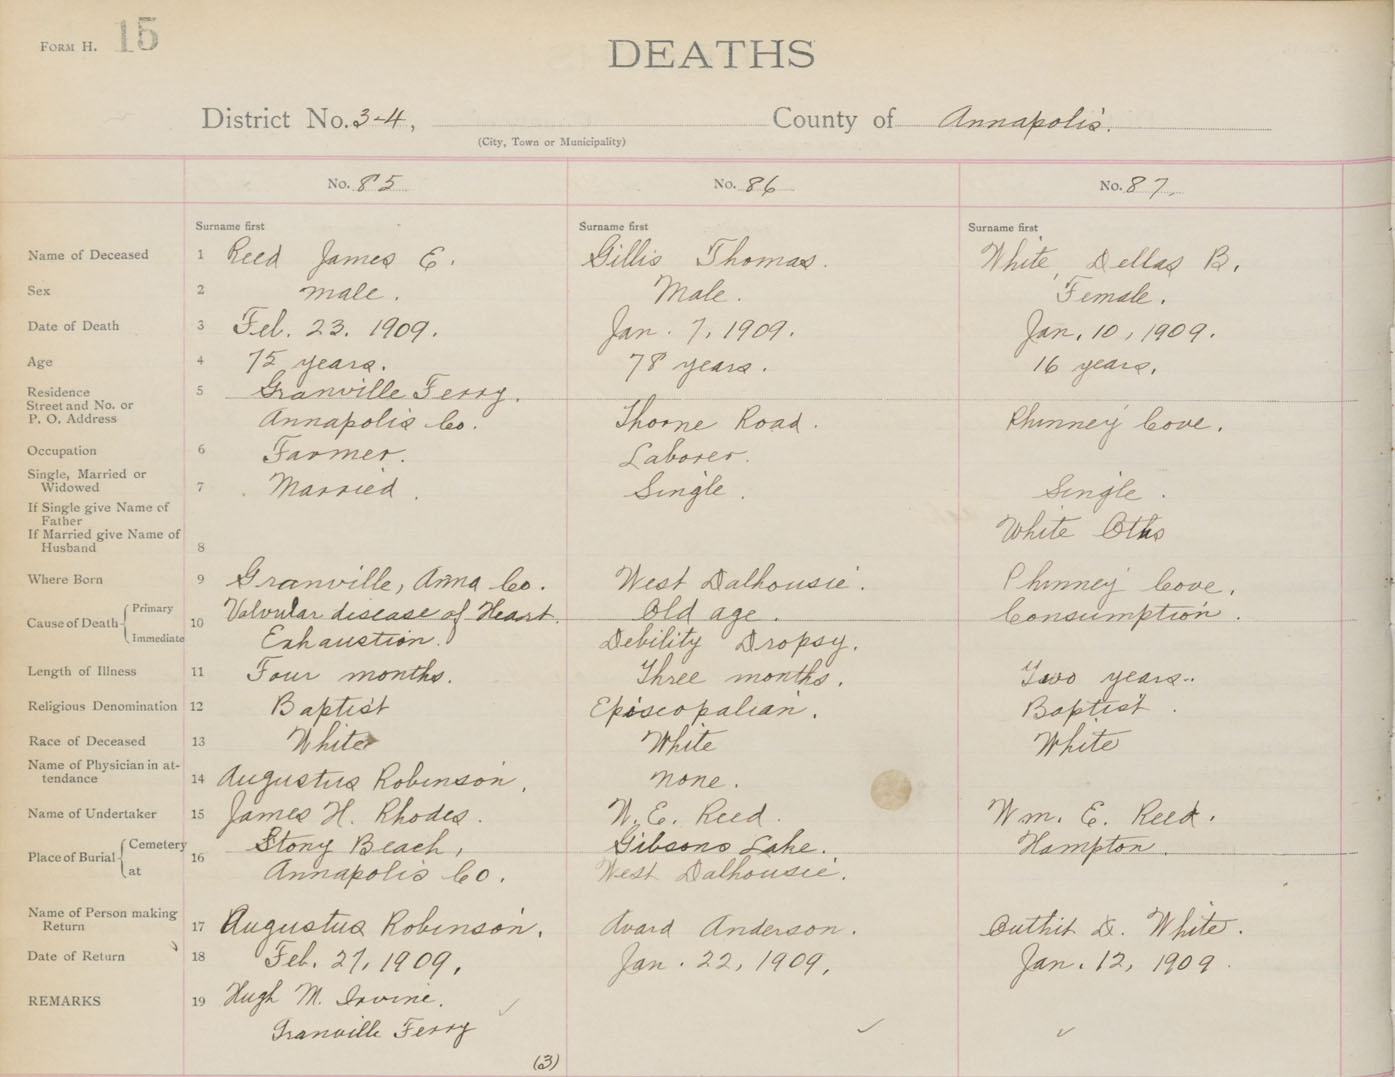 Form H. 15
DEATHS
District No. 3-4, County of Annapolis.
(City, Town or Municipality)
No. 85 No. 86 No. 87.
Surname first Surname first Surname first
Name of Deceased 1 Reed James E. Gillis Thomas. White, Dellas B.
Sex 2 male. Male. Female.
Date of Death 3 Feb. 23. 1909. Jan. 7, 1909. Jan. 10, 1909.
Age 4 75 years. 78 years. 16 years.
Residence 5 Granville Ferry.
Street and No. or
P. O. Address Annapolis Co. Thorne Road. Phinney Cove.
Occupation 6 Farmer. Laborer.
Single, Married or
Widowed 7 Married. Single. Single.
If Single give Name of
Father
If Married give Name of White
Husband 8
Where Born 9 Granville, Anna Co. West Dalhousie. Phinney Cove.
Cause of Death Primary 10 Valvular disease of Heart. Old age. Consumption.
Immediate Exhaustion. Debility Dropsy.
Length of Illness 11 Four months. Three months. Two years.
Religious Denomination 12 Baptist Episcopalian. Baptist.
Race of Deceased 13 White White White
Name of Physician in at-
tendance 14 Augustus Robinson. none.
Name of Undertaker 15 James H. Rhodes. W. E. Reed. Wm. E. Reed.
Place of Burial Cemetery 16 Stony Beach, Gibsons Lake. Hampton.
at Annapolis Co. West Dalhousie.
Name of Person making
Return 17 Augustus Robinson. Avard Anderson. Outhit D. White.
Date of Return 18 Feb. 27, 1909. Jan. 22, 1909. Jan. 12, 1909.
REMARKS 19 Hugh M. Irvine.
Granville Ferry
(3)